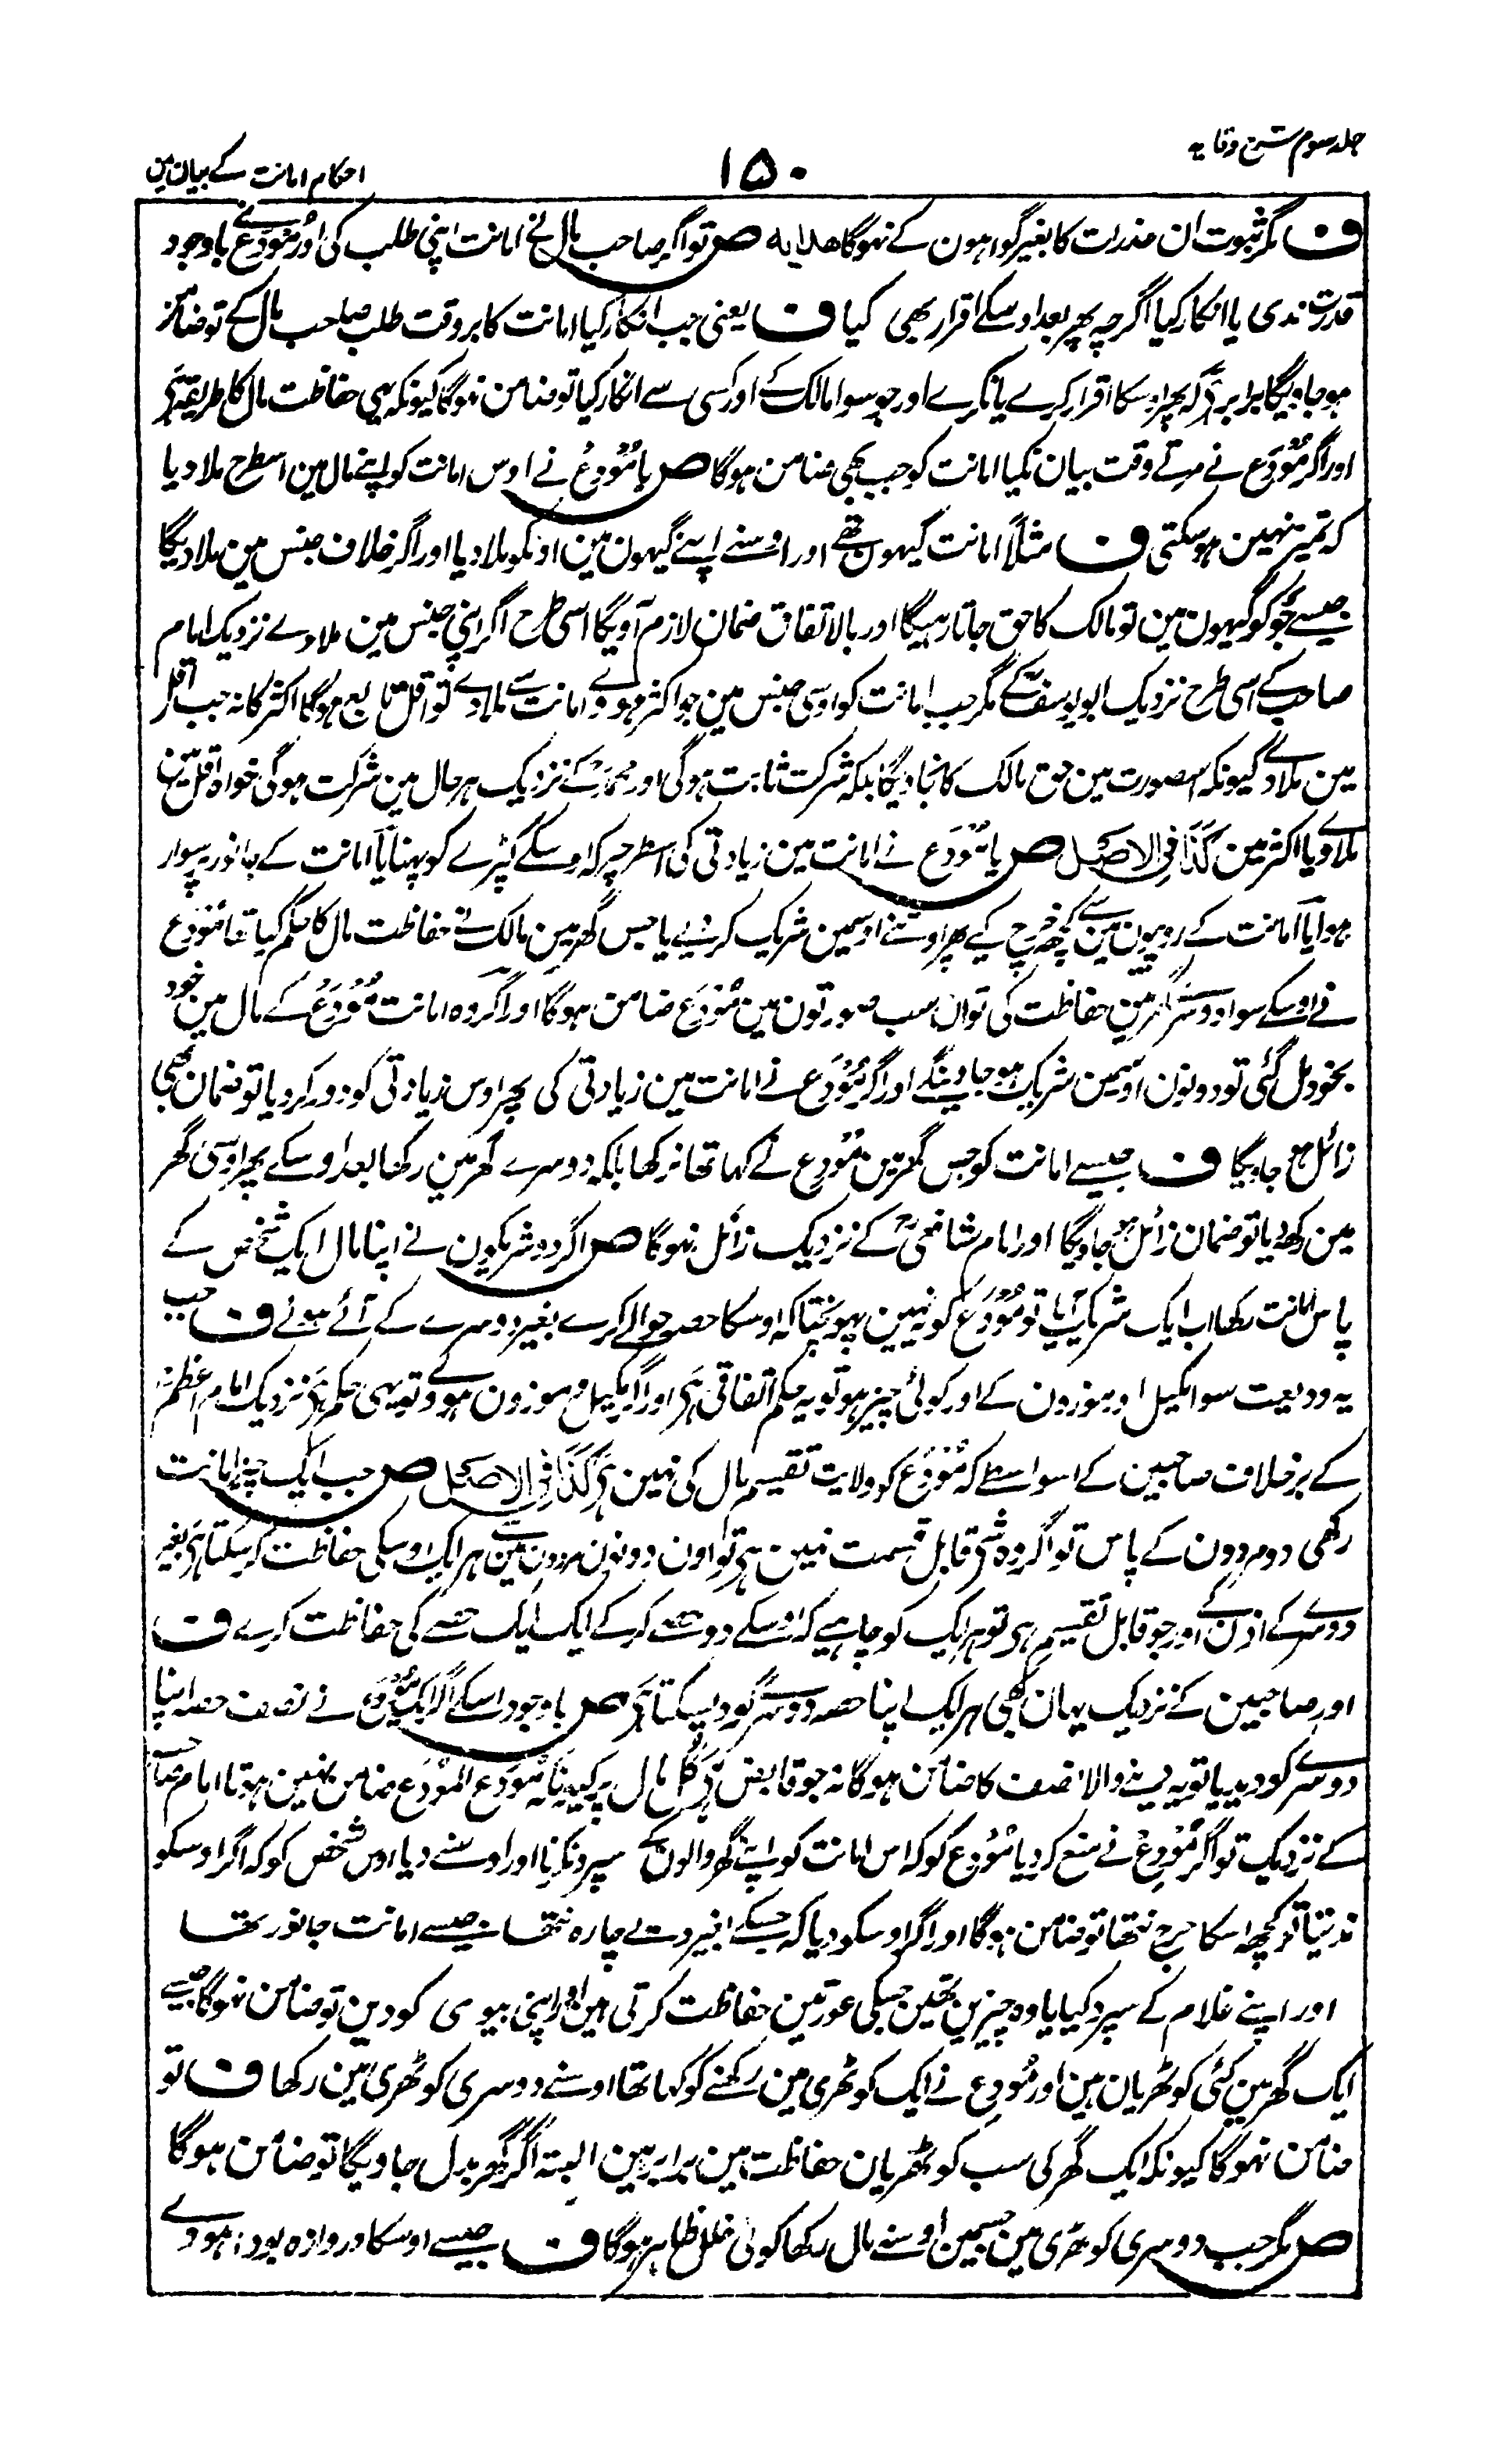 جلد سوم شرح وقایہ
۱۵۰
احکام امانت کے بیان مین
ف مگر ثبوت ان عذرات کا بغیر گواہون کے نہوگا ھدایہ ص تو اگر صاحب مال نے امانت اپنی طلب کی اور مُودَع نے باوجود
قدرت ندی یا انکار کیا اگرچہ پھر بعد اوسکے اقرار بھی کیا ف یعنی جب انکار کیا امانت کا بروقت طلب صاحب مال کے تو ضامن
ہو جاویگا برابر ہی کہ پھر اوسکا اقرار کرے یا نکرے اور جو سوا مالک کے اور کسی سے انکار کیا تو ضامن نہوگا کیونکہ یہی حفاظت مال کا طریقہ ہی
اور اگر مُودَع نے مرتے وقت بیان نکیا امانت کو جب بھی ضامن ہوگا ص یا مُودَع نے اوس امانت کو اپنے مال مین اسطرح ملا دیا
کہ تمیز نہین ہو سکتی ف مثلاً امانت گیہون تھے اور اوسنے اپنے گیہون مین اونکو ملا دیا اور اگر خلاف جنس مین ملا دیگا
جیسے جَو کو گیہون مین تو مالک کا حق جاتا رہیگا اور بالاتفاق ضمان لازم آویگا اسی طرح اگر اپنی جنس مین ملا دے نزدیک امام
صاحب کے اسی طرح نزدیک ابو یوسف کے مگر جب امانت کو اوسی جنس مین جو اکثر ہووے امانت سے ملا دے تو اقل تابع ہوگا اکثر کا نہ جب اقل
مین ملا دے کیونکہ اسصورت مین حق مالک کا نجاویگا بلکہ شرکت ثابت ہوگی اور محمد کے نزدیک ہر حال مین شرکت ہوگی خواہ اقل مین
ملاوے یا اکثر مین کَذَا فِی الاصل ص یا مُودَع نے امانت مین زیادتی کی اسطرحپر کہ اوسکے کپڑے کو پہنا یا امانت کے جانور پر سوار
ہوا یا امانت کے روپیون مین سے کچھ خرچ کیے پھر اوتنے اوسمین شریک کر دیے یا جس گھر مین مالک نے حفاظت مال کا حکم کیا تھا مُودَع
نے اوسکے سوا دوسرے گھر مین حفاظت کی تو ان سب صورتون مین مُودَع ضامن ہوگا اور اگر وہ امانت مُودَع کے مال مین خود
بخود مل گئی تو دونون اوسمین شریک ہو جاوینگے اور اگر مُودَع نے امانت مین زیادتی کی پھر اوس زیادتی کو دور کر دیا تو ضمان بھی
زائل ہو جاویگا ف جیسے امانت کو جس گھر مین مُودِع نے کہا تھا نرکھا بلکہ دوسرے گھر مین رکھا بعد اوسکے پھر اوسی گھر
مین رکھدیا تو ضمان زائل ہو جاویگا اور امام شافعیؒ کے نزدیک زائل نہوگا ص اگر دو شریکون نے اپنا مال ایک شخص کے
پاس امانت رکھا اب ایک شریک آیا تو مُودَع کو نہین پہونچتا کہ اوسکا حصہ حوالے کرے بغیر دوسرے کے آئے ہوئے ف جب
یہ ودیعت سوا مکیل اور موزون کے اور کوئی چیز ہو تو یہ حکم اتفاقی ہی اور اگر مکیل موزون ہووے تو یہی حکم ہی نزدیک امام اعظم
کے برخلاف صاحبین کے اسواسطے کہ مُودَع کو ولایت تقسیم مال کی نہین ہی کَذَا فِی الاصل ص جب ایک چیز امانت
رکھی دو مردون کے پاس تو اگر وہ شی قابل قسمت نہین ہی تو اون دونون مردون مین سے ہر ایک اوسکی حفاظت کر سکتا ہی بغیر
دوسرے کے اذن کے اور جو قابل تقسیم ہی تو ہر ایک کو چاہیے کہ اوسکے دو حصے کرکے ایک ایک حصے کی حفاظت کرے ف
اور صاحبین کے نزدیک یہان بھی ہر ایک اپنا حصہ دوسرے کو دیسکتا ہی ص باوجود اسکے اگر ایک مُودَع نے نصف حصہ اپنا
دوسرے کو دیدیا تو یہ دینے والا نصف کا ضامن ہوگا نہ جو قابض ہی کل مال پر کیونکہ مُودَع المُودَع ضامن نہین ہوتا امام صاحب
کے نزدیک تو اگر مُودِع نے منع کر دیا مُودَع کو کہ اس امانت کو اپنے گھر والون کے سپرد نکرنا اور اوسنے دیا اوس شخص کو کہ اگر اوسکو
ندیتا تو کچھ اسکا حرج نتھا تو ضامن ہوگا اور اگر اوسکو دیا کہ جسکے بغیر دیے چارہ نتھا جیسے امانت جانور تھا
اور اپنے غلام کے سپرد کیا یا وہ چیزین تھین جسکی عورتین حفاظت کرتی ہین اور اپنی بیوی کو دین تو ضامن نہوگا جیسے
ایک گھر مین کئی کوٹھریان ہین اور مُودِع نے ایک کوٹھری مین رکھنے کو کہا تھا اوسنے دوسری کوٹھری مین رکھا ف تو
ضامن نہوگا کیونکہ ایک گھر کی سب کوٹھریان حفاظت مین برابر ہین البتہ اگر گھر بدل جاویگا تو ضامن ہوگا
ص مگر جب دوسری کوٹھری مین جسمین اوسنے مال رکھا کوئی خلل ظاہر ہوگا ف جیسے اوسکا دروازہ بودا ہووے